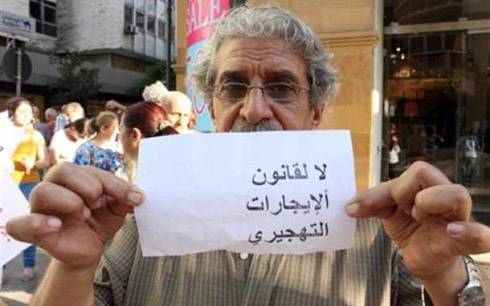 SALE
لا لقانون
ألإيجارات
التهجيري